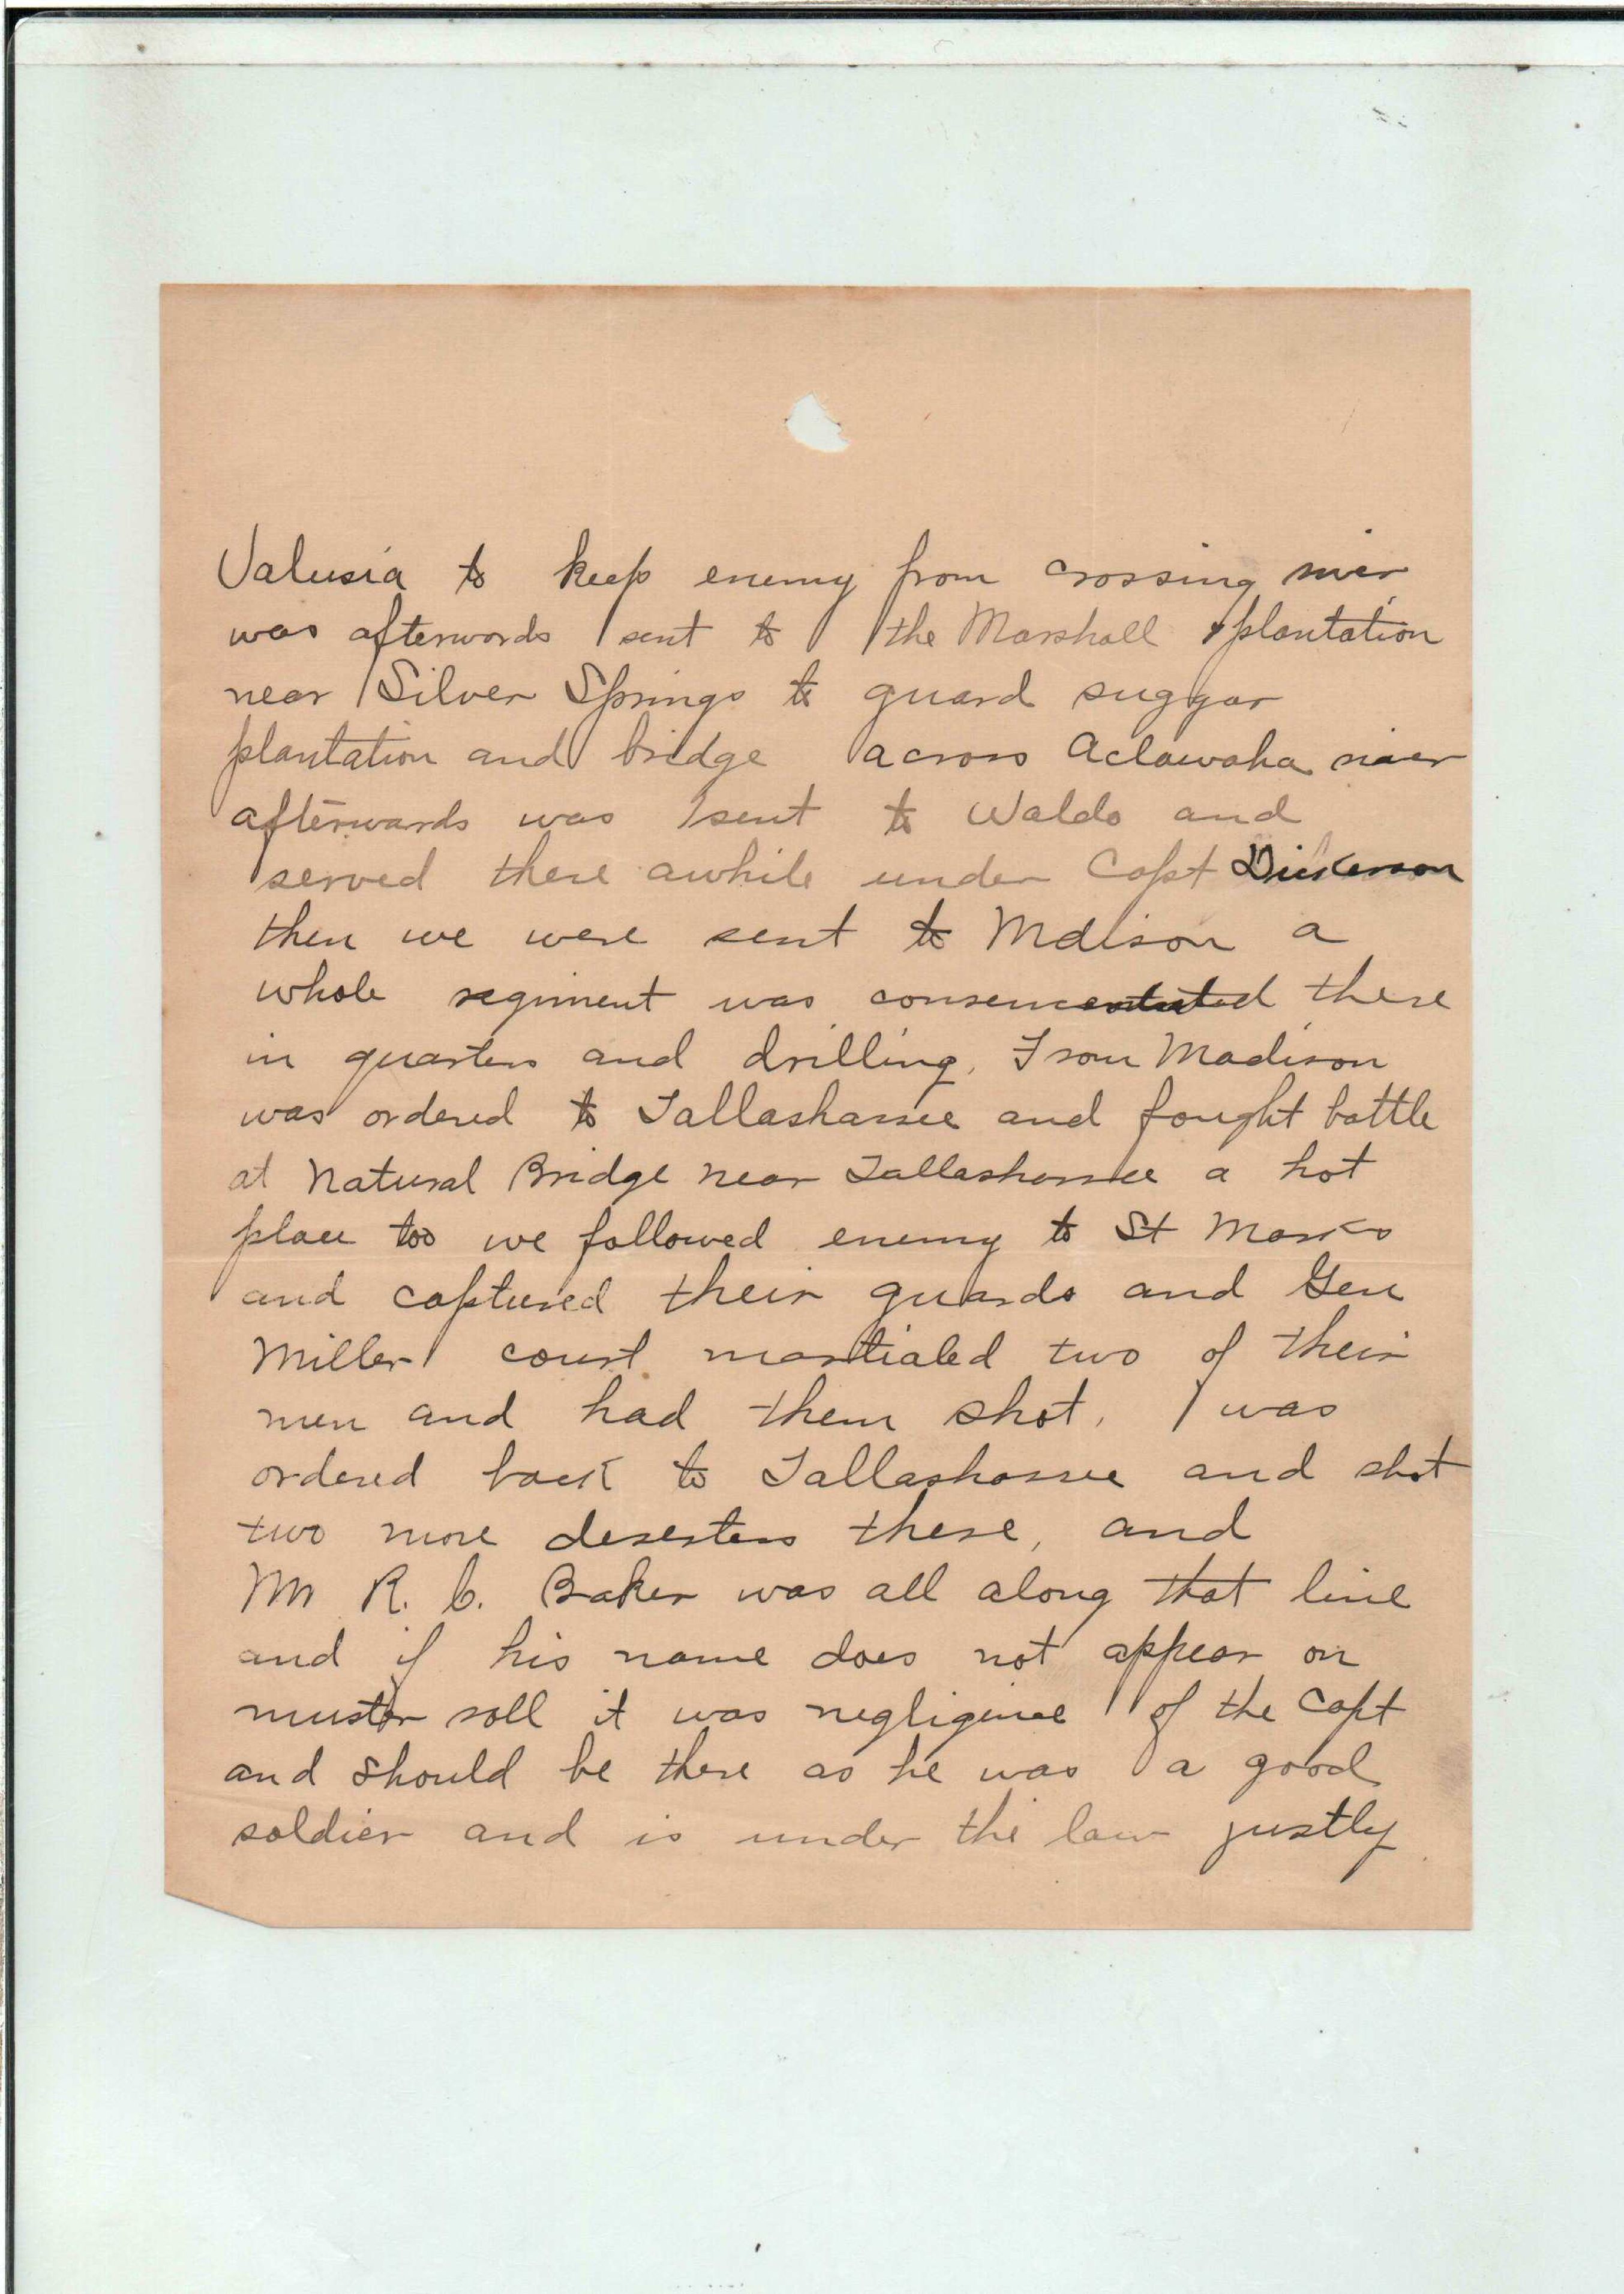 Valusia to keep enemy from crossing river
was afterwords sent to the Marshall plantation
near Silver Springs to guard suggar
plantation and bridge across Aclawaha river
afterwards was sent to Waldo and
served there awhile under Capt Dickerson
then we were sent to Mdison a
whole regiment was there
in quarters and drilling. From Madison
was ordered to Tallashassee and fought battle
at Natural Bridge near Tallashassee a hot
place too we followed enemy to St Marks
and captured their guards and Gen
Miller court martialed two of their
men and had them shot. I was
ordered back to Tallashassee and shot
two more deserters there, and
Mr R. C. Baker was all along that line
and if his name does not appear on
muster roll it was negligence of the Capt
and should be there as he was a good
soldier and is under the law justly